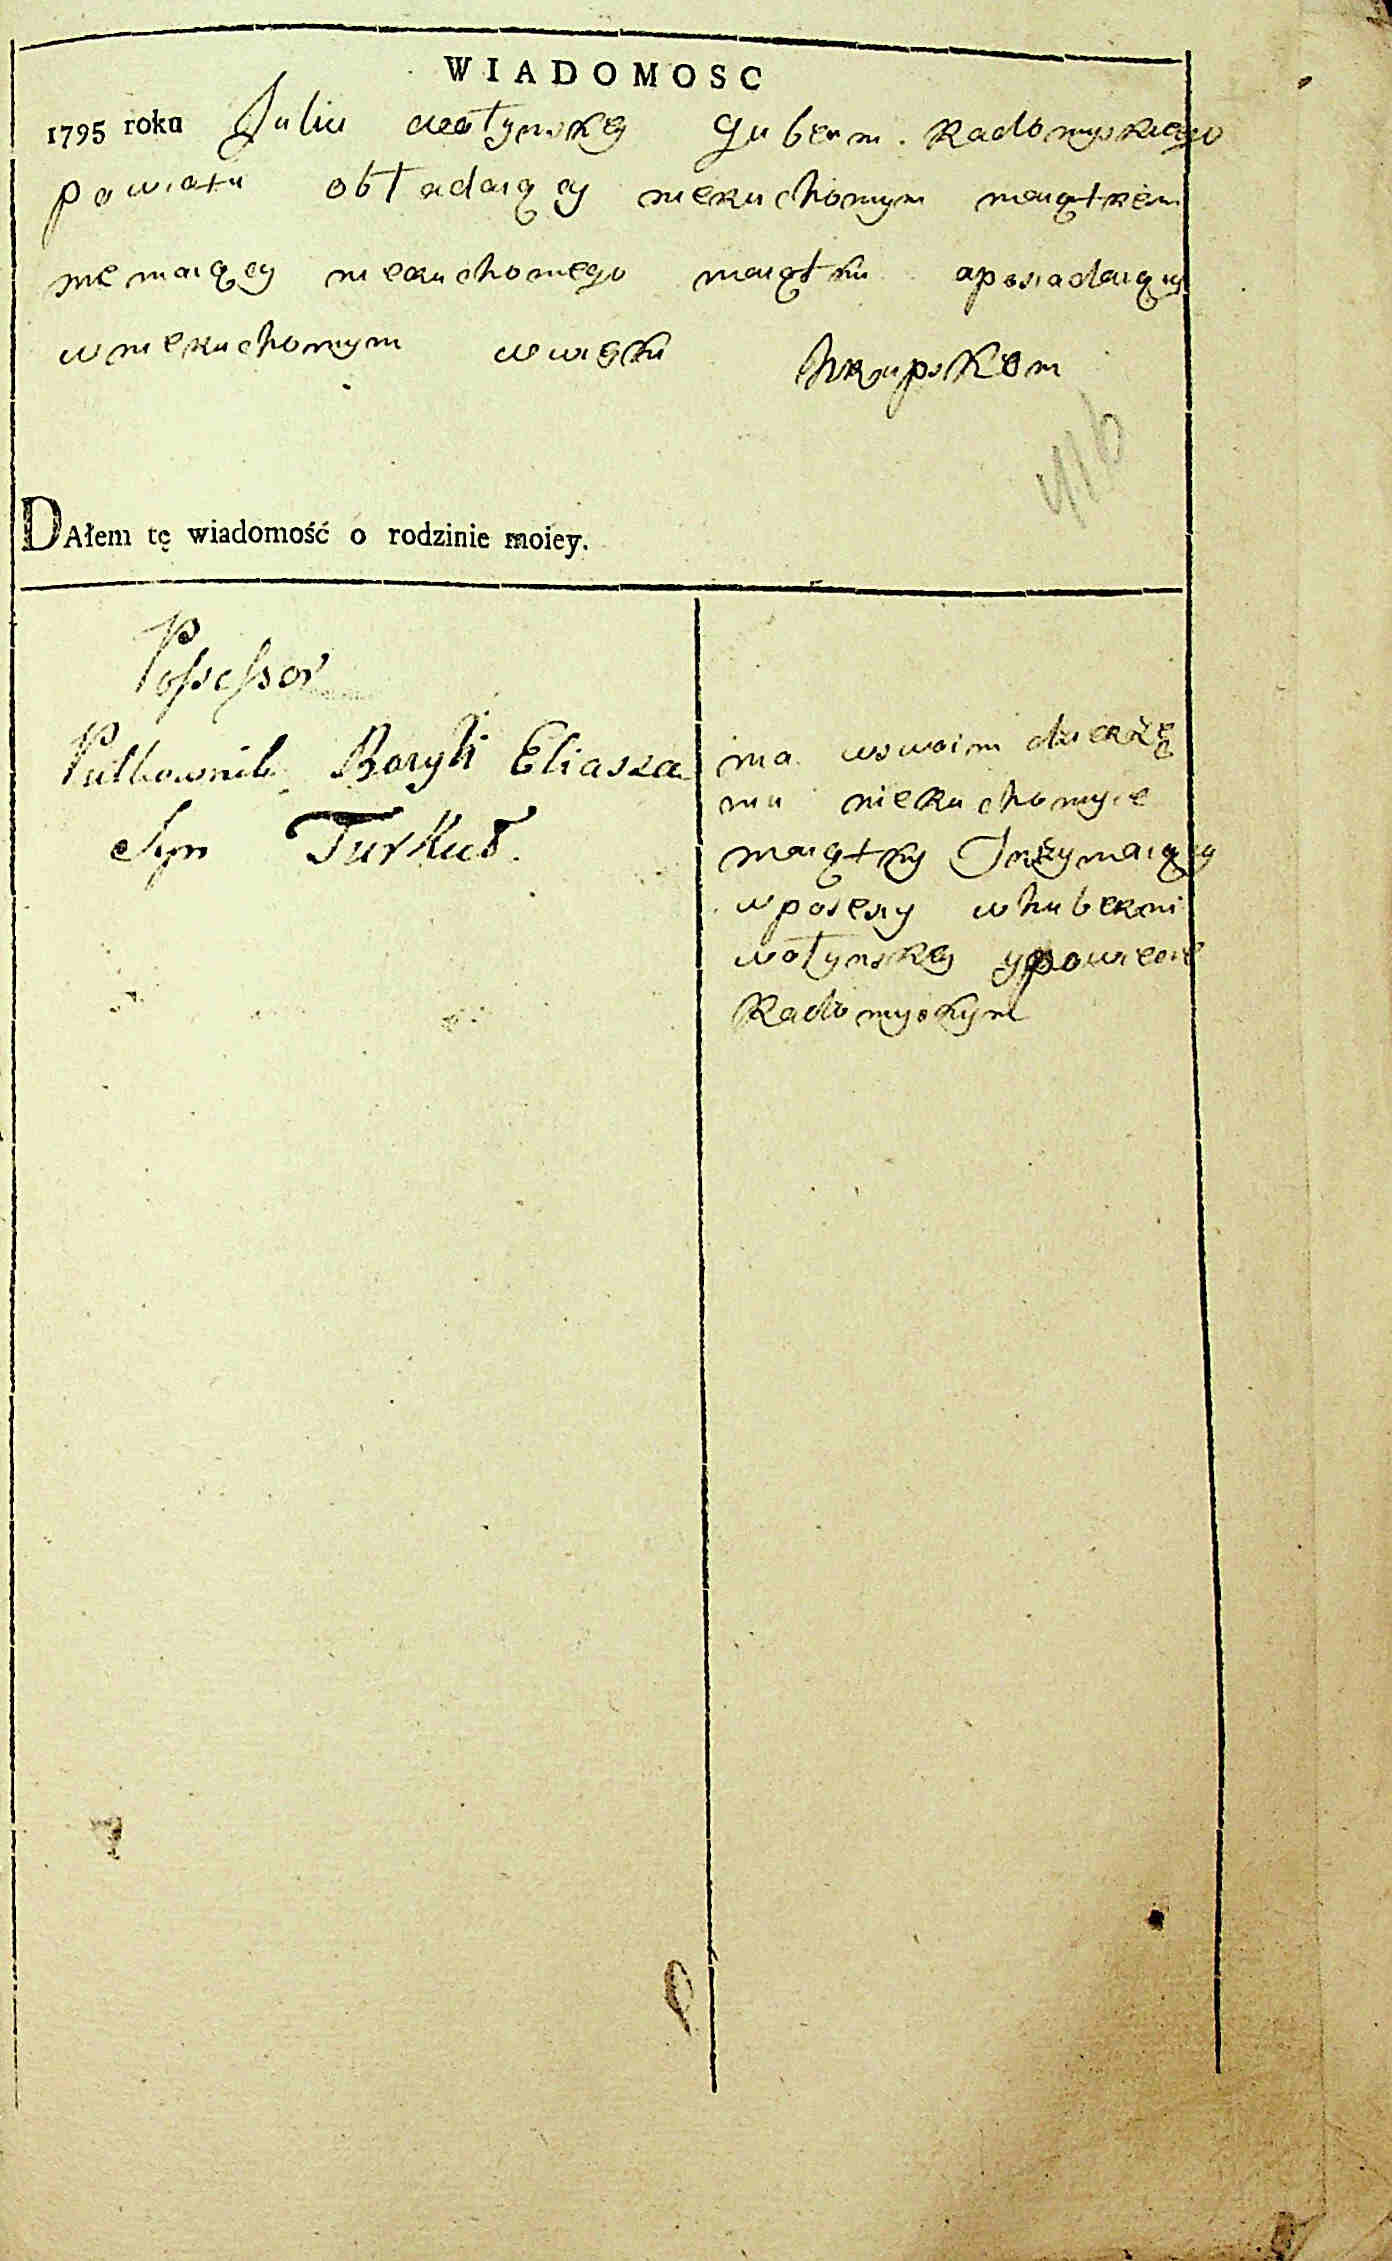 WIADOMOSC
1795 roku Juliu wołynskey Gubern. Radomyskiego
powiatu obładaiący nieruchomym maiątkiem
nie maiący nieruchomego maiątku aposiadaiący
w nieruchomym
416
DAłem tę wiadomość o rodzinie moiey.
Possessor
Pułkownik Bazyli Eliasza
Syn Turkuł.
ma wswoim dzierżę
niu nieruchomyie
maiątky
wposesyi whuberni
wołynskey ypowiecie
Radomyskym